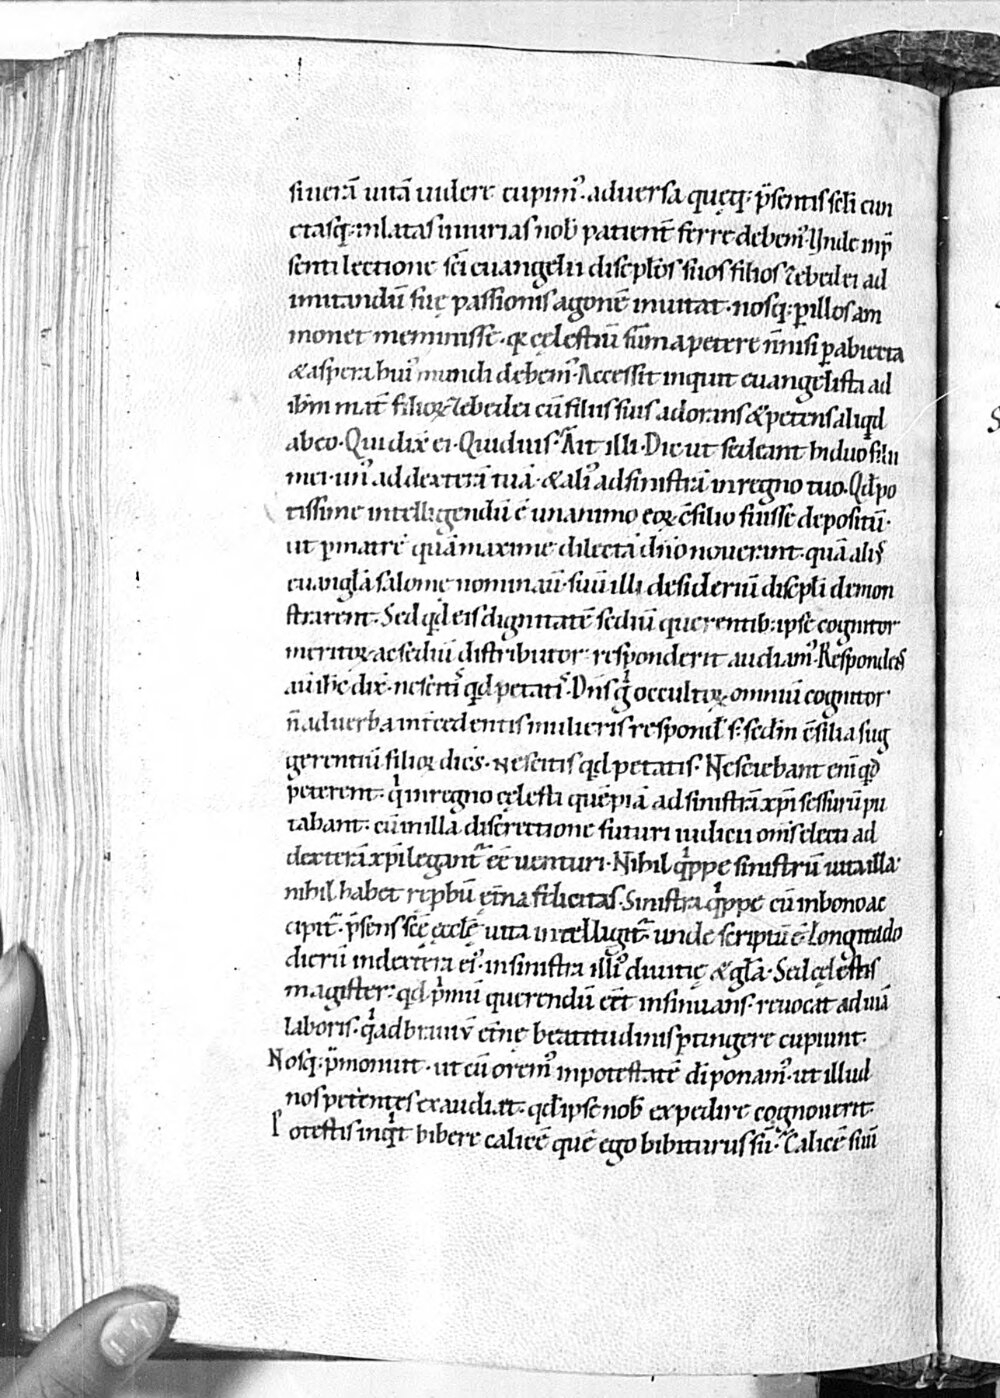 siuerā uitā uidere cupimꝰ· aduersa quęq; p̄sentis scłi cun
ctasq; inlatas iniurias nob patient̄ ferre debemꝰ. Vnde in p̄
senti lectione sc̄i euangelii discipłos suos filios zebedei ad
imitandū suę passionis agonē inuitat· nosq; ꝑ illos am
monet meminisse· qꝛ cęlestiū sūma petere n̄ nisi ꝑ abiecta
& aspera huiꝰ mundi debemꝰ. Accessit inquit euangelista ad
ih̄m mat̄ filioꝝ zebedei cū filiis suis adorans & petens aliqd
ab eo· Qui dix̄ ei· Quid uis. Ait illi· Dic ut sedeant hi duo filii
mei· unꝰ ad dexterā tuā· & aliꝰ ad sinistrā in regno tuo. Qd po
tissime intelligendū ē unanimo eoꝝ c̄silio fuisse depositū·
ut ꝑ matrē quā maxime dilectā dn̄o nouerint· quā aliꝰ
euangła salome nominauit· suū illi desideriū discipłi demon
strarent· Sed qd eis dignitatē sediū querentib; ipse cognitor
meritoꝝ ac sediū distributor responderit audiamꝰ. Respondens
au ih̄c dix̄· nescitis qd petatis. Dn̄s g̊ occultoꝝ omniū cognitor
n̄ ad uerba int̄cedentis mulieris respondit· s; sed in c̄silia sug
gerentiū filioꝝ dicens· Nescitis qd petatis. Nesciebant eni qd
peterent· qi in regno cęlesti quēpiā ad sinistrā xp̄i sessurū pu
tabant· cū in illa discretione futuri iudicii om̄s electi ad
dexterā xp̄i legant̄ ee uenturi. Nihil qippe sinistrū uita illa·
nihil habet repbū et̄na felicitas. Sinistra qippe cū in bono ac
cipit̄· p̄sens sc̄ę ęcclę uita intelligit̄· unde scriptū ē. Longitudo
dierū in dextera eiꝰ· in sinistra illiꝰ diuitię & gła. Sed cęlestis
magister· qd p̄mū querendū eēt insinuans· reuocat ad uiā
laboris· qi ad brauiū et̄ne beatitudinis ꝑtingere cupiunt.
Nosq; p̄monuit· ut cū oremꝰ in potestatē di ponamꝰ· ut illud
nos petentes exaudiat· qd ipse nob expedire cognouerit.
Potestis inqit bibere calicē quē ego bibiturus sū. Calicē siui